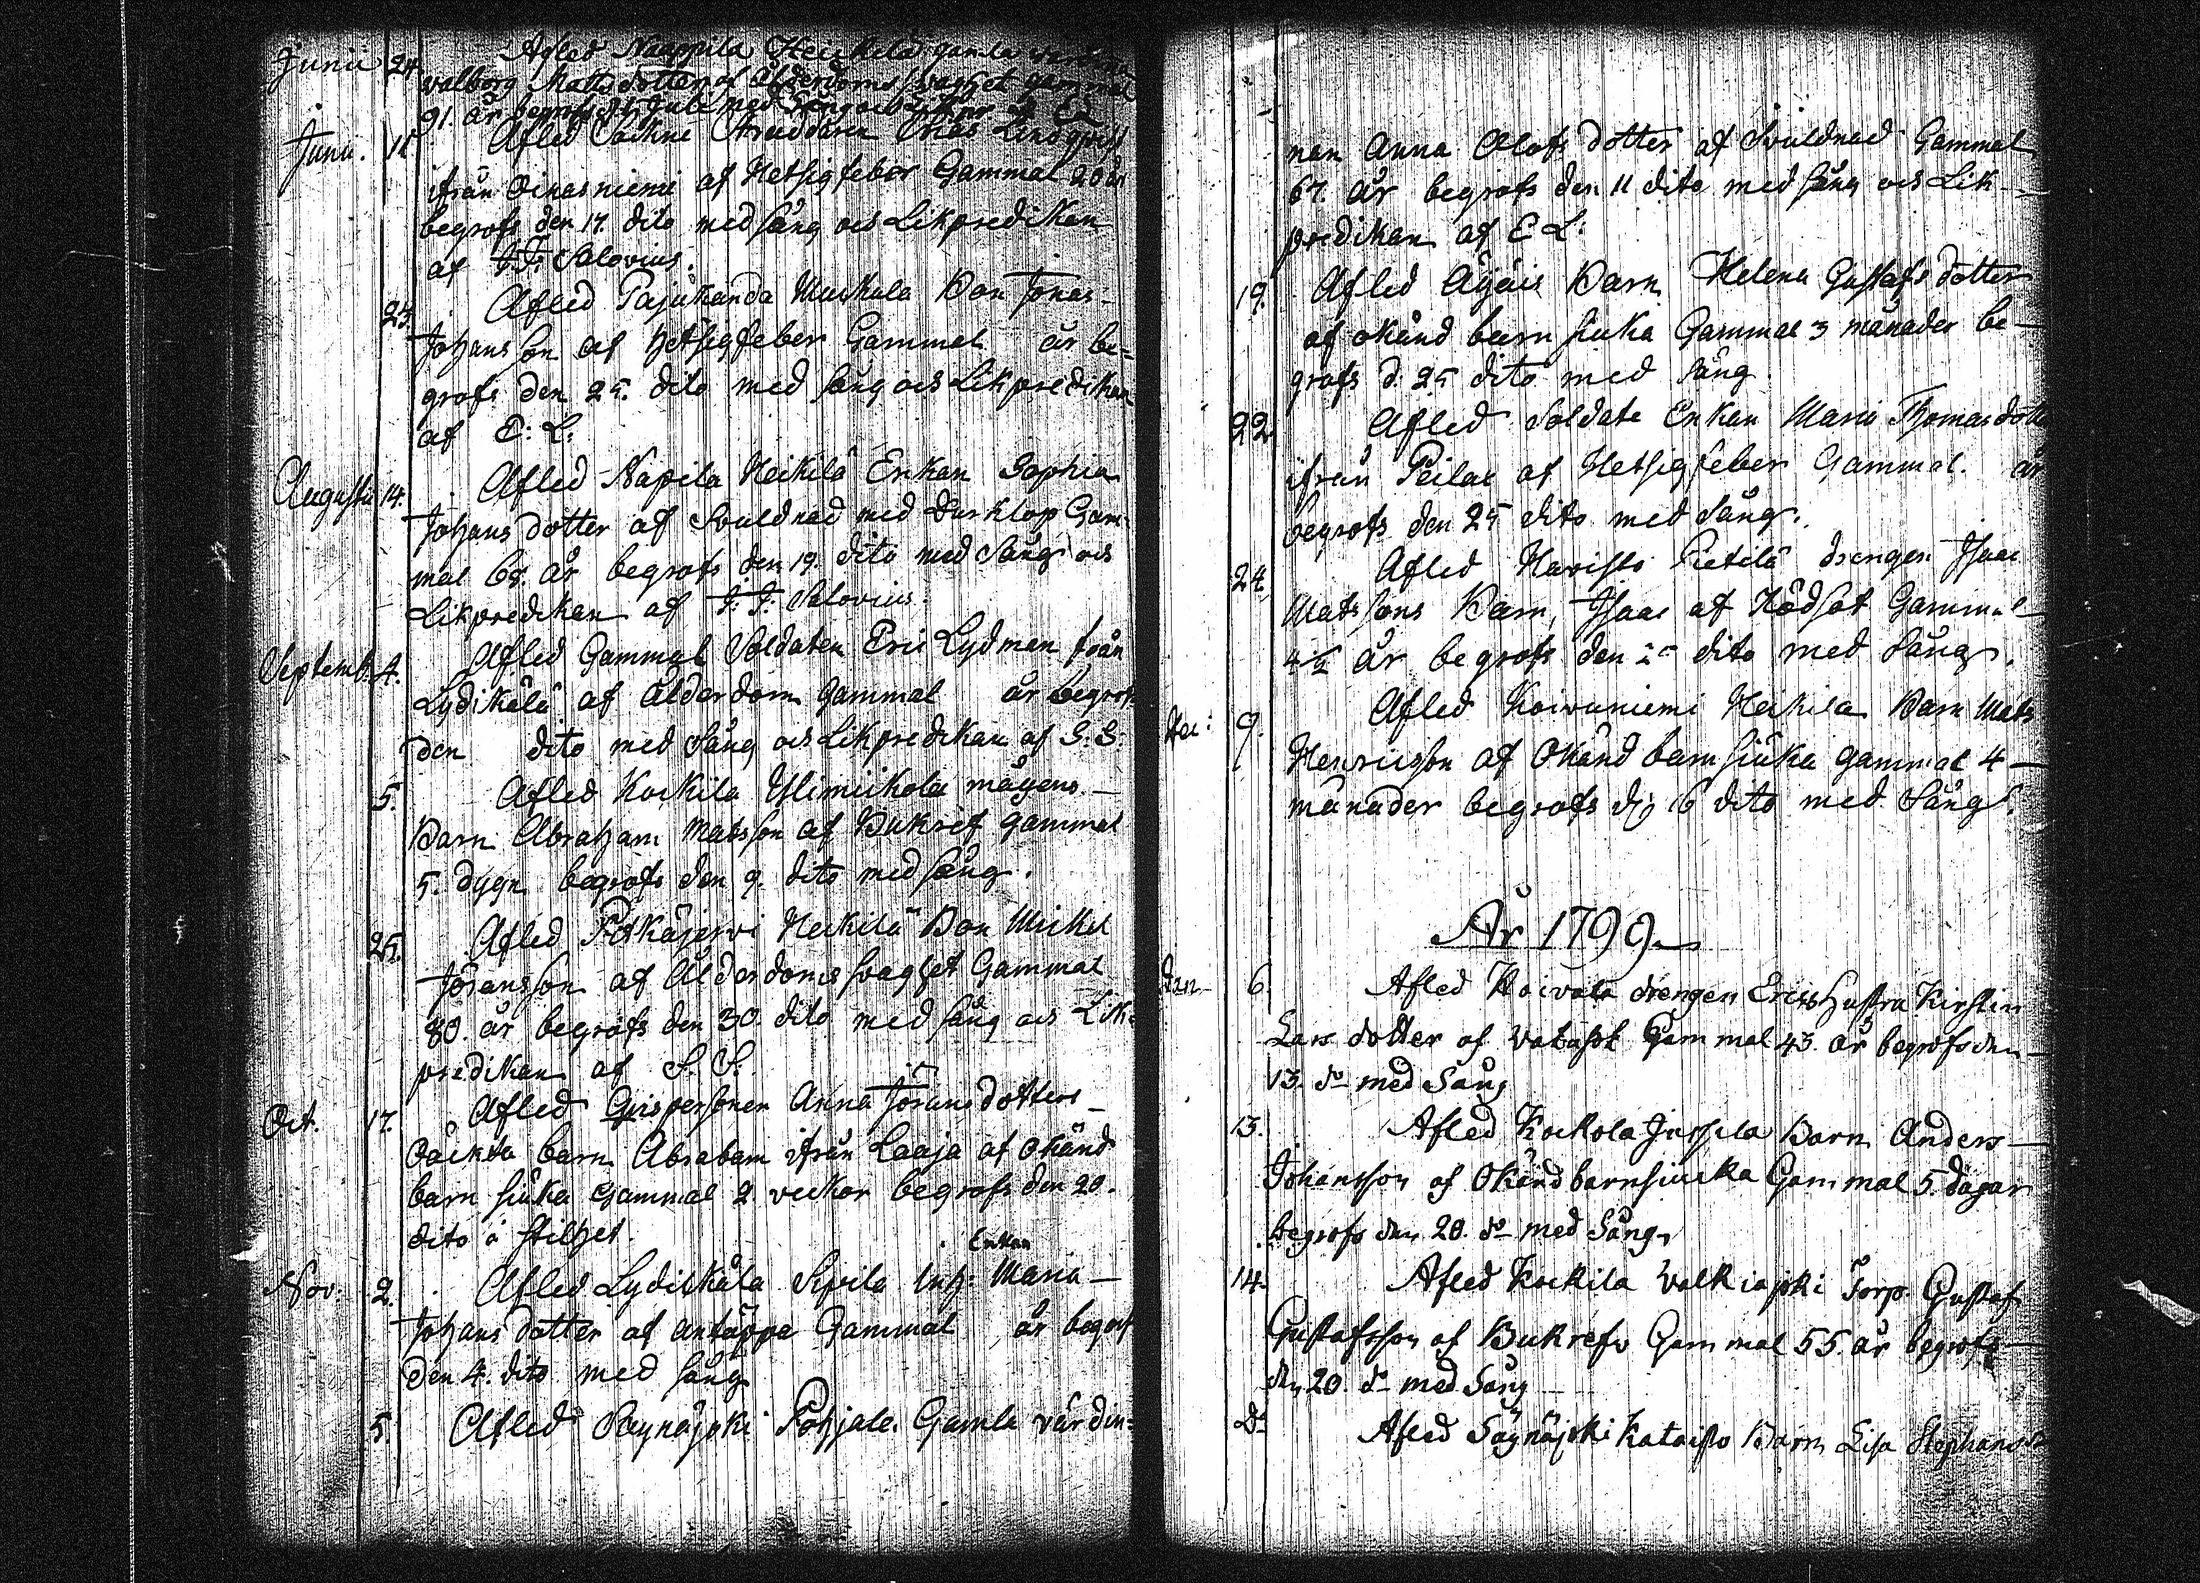 Junii 24 Afled Naappila Heickilä gamla
walborg Matts dotter af Ålderdoms svaghet gammal
91. år begrofs
Junii. 11 Afled Sockne Skräddaren Elias Lindqvist
ifrån Oinasniemi af Hetsigfeber Gammal 20 år
begrofs den 17. dito med sång och Likpredikan
af J: F: Salovius.
23. Afled Pajukanda Uuskula Bon Jonas
Johansson af hetsigfeber Gammal år be=
grofs den 25. dito med sång och Likpredikan
af E: L:
Augustii 14. Afled Napila Heikilä Enkan Sophia
Johans dotter af Svuldnad med Durklop Gam-
mal 68. år begrofs den 19. dito med Sång och
Likpredikan af J: F: Salovius.
Septemb. 4. Afled Gammal Soldaten Eric Lydman från
Lydikälä af ålderdom gammal år begrofs
den dito med Sång och Likpredikan af S: S:
5. Afled Kockila Ylimickola mågens
Barn Abraham Matsson af Bukref gammal
5. dygn begrofs den 9. dito med sång.
25. Afled Potkäjervi Heikilä Bon Michel
Jöransson af Ålderdoms svaghet Gammal
80. år begrofs den 30. dito med sång och Lik=
predikan af S. S.
Oct. 17. Afled Gvispersonen Anna Jörans dotters
Oäckta barn Abraham ifrån Laaja af okänd
barn siuka Gammal 2 veckor begrofs den 20.
dito i stilhet.
Enkan
Nov: 2. Afled Lydickälä Sipila Inh: Maria
Johans dotter af antäppa Gammal år begrofs
den 4. dito med sång
5. Afled Peynäjoki Pohjala Gamla värdin=
nan Anna Olofs dotter af Svuldnad Gammal
67. år begrofs den 11 dito med sång och Lik-
predikan af E L:
19. Afled Äijäis Barn Helena Gustafs dotter
af okänd barn siuka Gammal 3 månader be-
grofs d. 25 dito med sång.
22. Afled Soldate Enkan Maria Thomasdotter
ifrån Peilae af Hetsigfeber Gammal. år
begrofs den 25 dito med Sång.
24. Afled Havisto Pietilä drengen Isaac
Matssons Barn, Isaac af Rödsot Gammal
4½ år begrofs den 25 dito med Sång.
Dec: 9. Afled Koivuniemi Heikila Barn Mats
Henricsson af Okänd barnsiuka gammal 4
månader begrofs d: 16 dito med Sång.
År 1799.
Jan 6. Afled Koivola drengen Erics Hustru Kirstin
Lars dotter af vatusot Gammal 43. år begrofs den
13. do med Sång
13. Afled Kockola Jussila Barn Anders
Johansson af Okänd barnsiucka Gammal 5. dagar
begrofs den 20. do med Sång
14. Afled Kockila Valkiajoki Torp. Gustaf
Gustafsson af Bukrefv Gammal 55. år begrofs
den 20. do med Sång
Do Afled Säynäjoki Kataisto Barn Lisa Stephansd